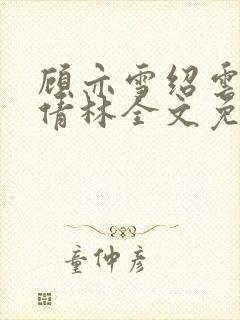 顾亦雪绍雲
倩林全文免
童仲彦